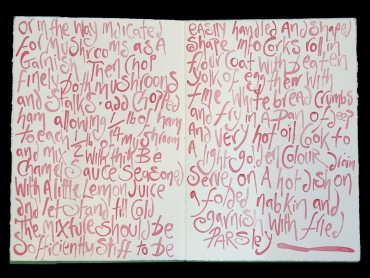 or in the way indicated
For Mushrooms as A
Garnish. Then chop
Finely both mushrooms
and stalks. add chopped
ham allowing 1/2 lb of ham
to each lb of mushroom
and mix with thick Be
Chamel Sauce seasoned
With A little Lemon Juice
and let stand till cold
The mixture should be
Sofficiently Stiff to be
easily handled And shaped
Shape into corks roll in
flour Coat with beaten
yolk of egg then with
fine white bread Crumbs
and fry in A pan of deep
And very hot oil Cook to
A light golden Colour drain
Serve on A hot dish on
a folded napkin and
garnish with fried
PARSley